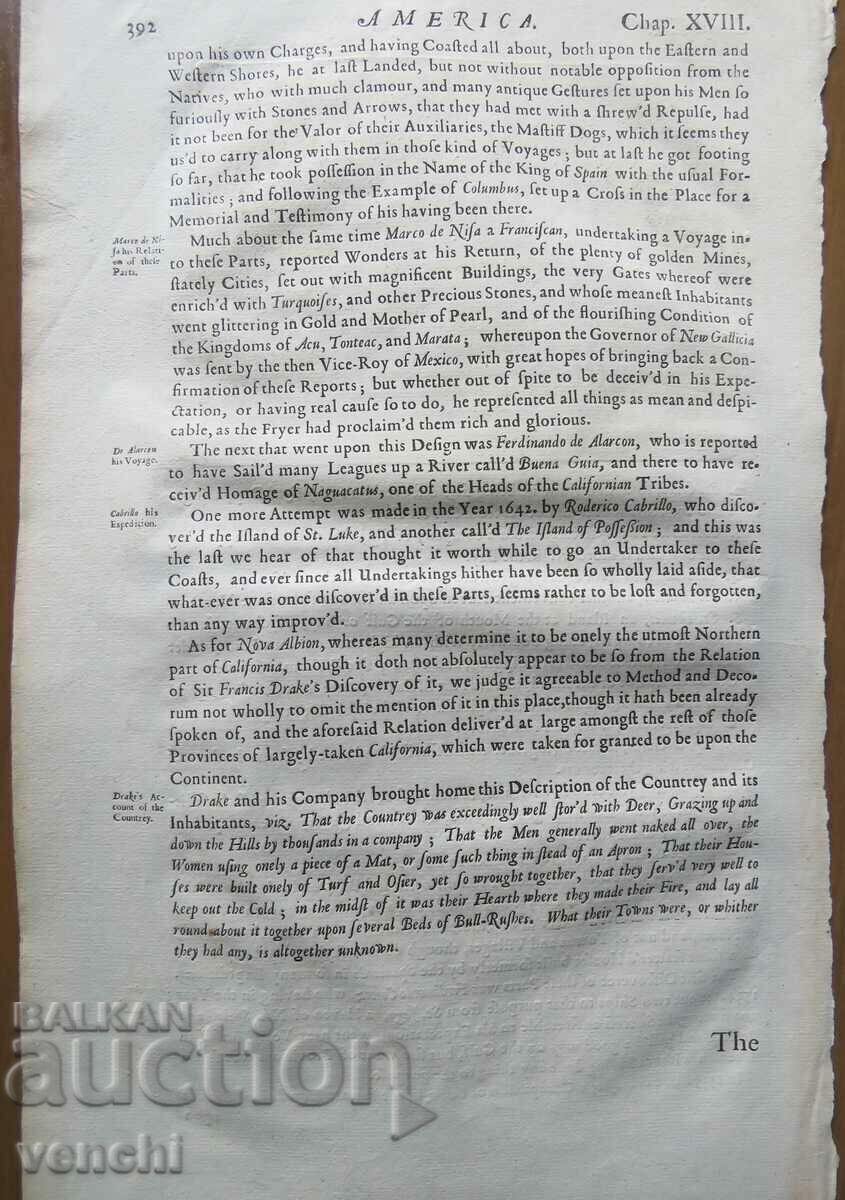 392
AMERICA.
Chap. XVIII.
upon his own Charges, and having Coaſted all about, both upon the Eaſtern and
Weſtern Shores, he at laſt Landed, but not without notable oppoſition from the
Natives, who with much clamour, and many antique Geſtures ſet upon his Men ſo
furiouſly with Stones and Arrows, that they had met with a ſhrew'd Repulſe, had
it not been for the Valor of their Auxiliaries, the Maſtiff Dogs, which it ſeems they
us'd to carry along with them in thoſe kind of Voyages; but at laſt he got footing
ſo far, that he took poſſeſſion in the Name of the King of Spain with the uſual For-
malities; and following the Example of Columbus, ſet up a Croſs in the Place for a
Memorial and Teſtimony of his having been there.
Marco de Ni-
ſa his Relati-
on of theſe
Parts.
Much about the ſame time Marco de Niſa a Franciſcan, undertaking a Voyage in-
to theſe Parts, reported Wonders at his Return, of the plenty of golden Mines,
ſtately Cities, ſet out with magnificent Buildings, the very Gates whereof were
enrich'd with Turquoiſes, and other Precious Stones, and whoſe meaneſt Inhabitants
went glittering in Gold and Mother of Pearl, and of the flouriſhing Condition of
the Kingdoms of Acu, Tonteac, and Marata; whereupon the Governor of New Gallicia
was ſent by the then Vice-Roy of Mexico, with great hopes of bringing back a Con-
firmation of theſe Reports; but whether out of ſpite to be deceiv'd in his Expe-
ctation, or having real cauſe ſo to do, he repreſented all things as mean and deſpi-
cable, as the Fryer had proclaim'd them rich and glorious.
De Alarcon
his Voyage.
The next that went upon this Deſign was Ferdinando de Alarcon, who is reported
to have Sail'd many Leagues up a River call'd Buena Guia, and there to have re-
ceiv'd Homage of Naguacatus, one of the Heads of the Californian Tribes.
Cabrillo his
Expedition.
One more Attempt was made in the Year 1642. by Roderico Cabrillo, who diſco-
ver'd the Iſland of St. Luke, and another call'd The Iſland of Poſſeſſion; and this was
the laſt we hear of that thought it worth while to go an Undertaker to theſe
Coaſts, and ever ſince all Undertakings hither have been ſo wholly laid aſide, that
what-ever was once diſcover'd in theſe Parts, ſeems rather to be loſt and forgotten,
than any way improv'd.
As for Nova Albion, whereas many determine it to be onely the utmoſt Northern
part of California, though it doth not abſolutely appear to be ſo from the Relation
of Sir Francis Drake's Diſcovery of it, we judge it agreeable to Method and Deco-
rum not wholly to omit the mention of it in this place, though it hath been already
ſpoken of, and the aforeſaid Relation deliver'd at large amongſt the reſt of thoſe
Provinces of largely-taken California, which were taken for granted to be upon the
Continent.
Drake's Ac-
count of the
Countrey.
Drake and his Company brought home this Deſcription of the Countrey and its
Inhabitants, viz. That the Countrey was exceedingly well ſtor'd with Deer, Grazing up and
down the Hills by thouſands in a company; That the Men generally went naked all over, the
Women uſing onely a piece of a Mat, or ſome ſuch thing in ſtead of an Apron; That their Hou-
ſes were built onely of Turf and Oſier, yet ſo wrought together, that they ſerv'd very well to
keep out the Cold; in the midſt of it was their Hearth where they made their Fire, and lay all
round about it together upon ſeveral Beds of Bull-Ruſhes. What their Towns were, or whither
they had any, is altogether unknown.
The
BALKAN
auction
venchi